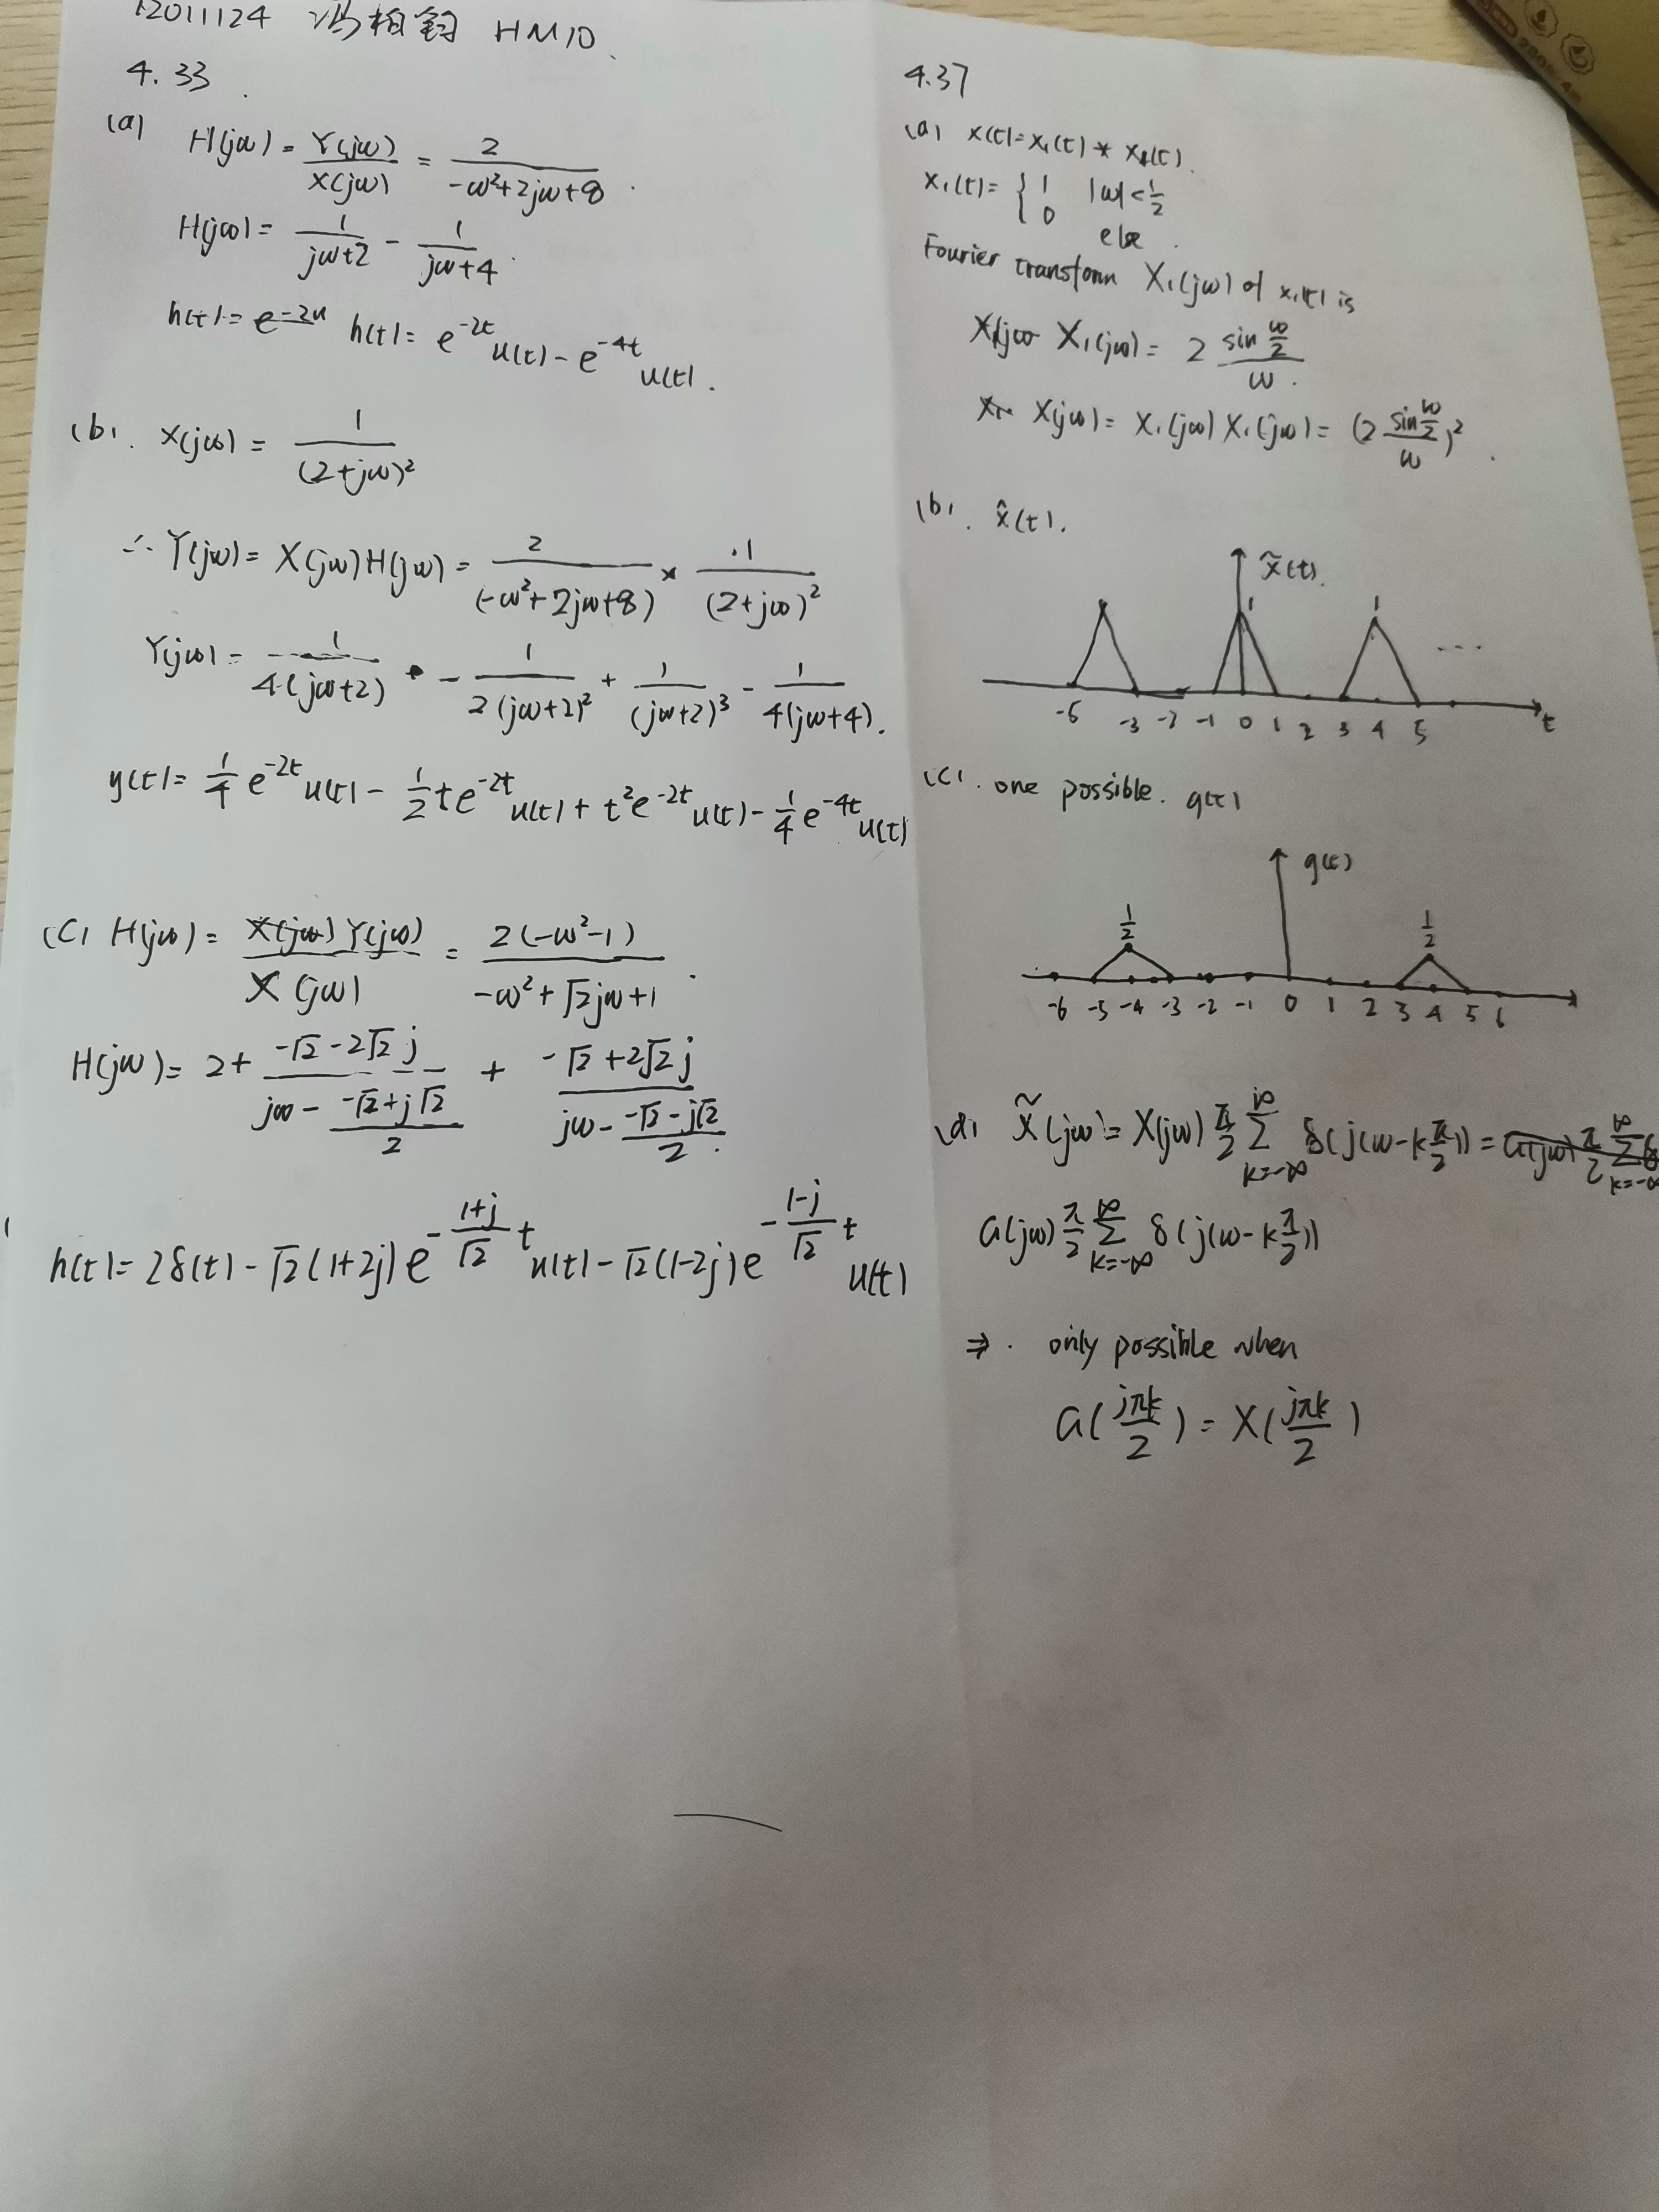 12011124 冯柏钧 HM10
4.33
(a) H(jω) = Y(jω)/X(jω) = 2/(-ω²+2jω+8)
H(jω) = 1/(jω+2) - 1/(jω+4)
h(t) = e^{-2t}u(t) - e^{-4t}u(t).
(b). X(jω) = 1/(2+jω)²
∴ Y(jω) = X(jω)H(jω) = 2/(-ω²+2jω+8) × 1/(2+jω)²
Y(jω) = 1/(4(jω+2)) - 1/(2(jω+2)²) + 1/(jω+2)³ - 1/(4(jω+4)).
y(t) = 1/4 e^{-2t}u(t) - 1/2 te^{-2t}u(t) + t²e^{-2t}u(t) - 1/4 e^{-4t}u(t)
(c) H(jω) = Y(jω)/X(jω) = 2(-ω²-1)/(-ω²+√2jω+1).
H(jω) = 2 + (-√2-2√2j)/(jω - (-√2+j√2)/2) + (-√2+2√2j)/(jω - (-√2-j√2)/2).
h(t) = 2δ(t) - √2(1+2j)e^{-(1+j)/√2 t}u(t) - √2(1-2j)e^{-(1-j)/√2 t}u(t)
4.37
(a) x(t) = x₁(t) * x₁(t).
x₁(t) = { 1 |ω| < 1/2
0 else.
Fourier transform X₁(jω) of x₁(t) is
X₁(jω) = 2 sin(ω/2)/ω.
X(jω) = X₁(jω)X₁(jω) = (2 sin(ω/2)/ω)².
(b). x̂(t).
x̃(t).
1 1 ...
-5 -3 -2 -1 0 1 2 3 4 5 t
(c). one possible. g(t)
g(t)
1/2 1/2
-6 -5 -4 -3 -2 -1 0 1 2 3 4 5 6
(d) X̃(jω) = X(jω) π/2 ∑_{k=-∞}^{∞} δ(j(ω-kπ/2)) =
G(jω) π/2 ∑_{k=-∞}^{∞} δ(j(ω-kπ/2))
⇒. only possible when
G(jπk/2) = X(jπk/2)